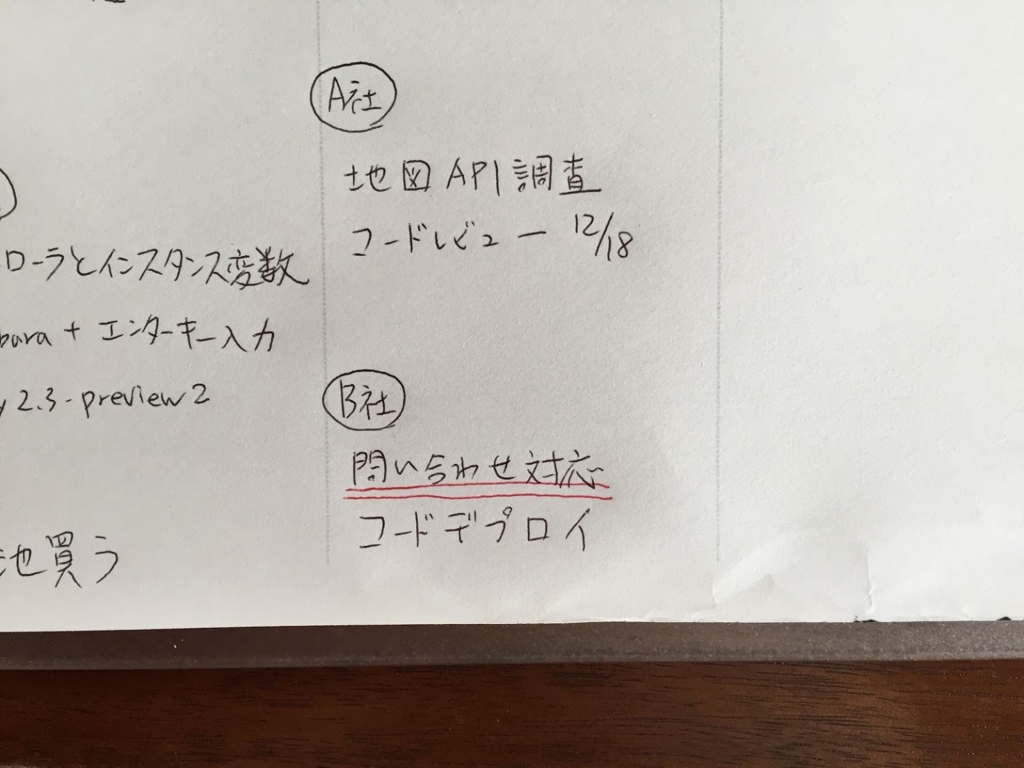 ローラとインスタンス変数
bara + エンターキー入力
y 2.3-preview2
池買う
A社
地図API調査
コードレビュー 12/18
B社
問い合わせ対応
コードデプロイ